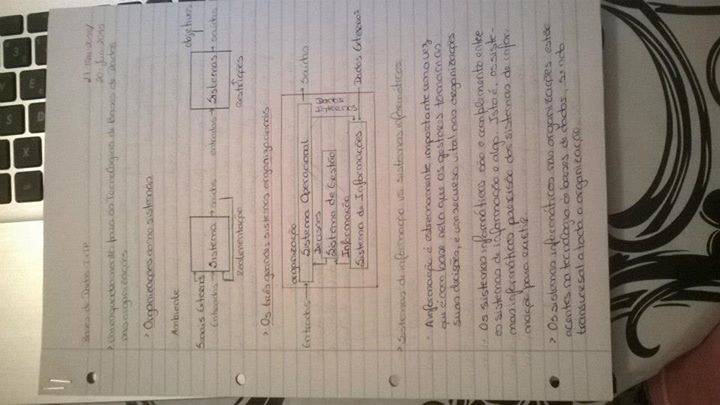 Bases de Dados I CP
> Um enquadramento para as Tecnologias de Bases de Dados
nas organizações
> Organizações como sistemas
Ambiente
Sinais Externos
Entradas
Sistema
saídas
Realimentação
objetivos
entradas
Sistemas
saídas
Restrições
> Os três grandes sistemas organizacionais
organização
Entradas
Sistema Operacional
Saídas
Decisões
Dados
Externos
Sistema de Gestão
Informação
Sistema de Informações
Dados Externos
> Sistemas de informação vs sistemas informáticos
A informação é extremamente importante uma vez
que é com base nela que os gestores tomam as
suas decisões, é um recurso vital nas organizações
Os sistemas informáticos são o complemento entre
os sistemas de informação e algo. Isto é, os siste-
mas informáticos precisão dos sistemas de infor-
mação para existir.
> Os sistemas informáticos nas organizações estão
acentes na tecnologia de bases de dados, sendo
transversal a toda a organização.